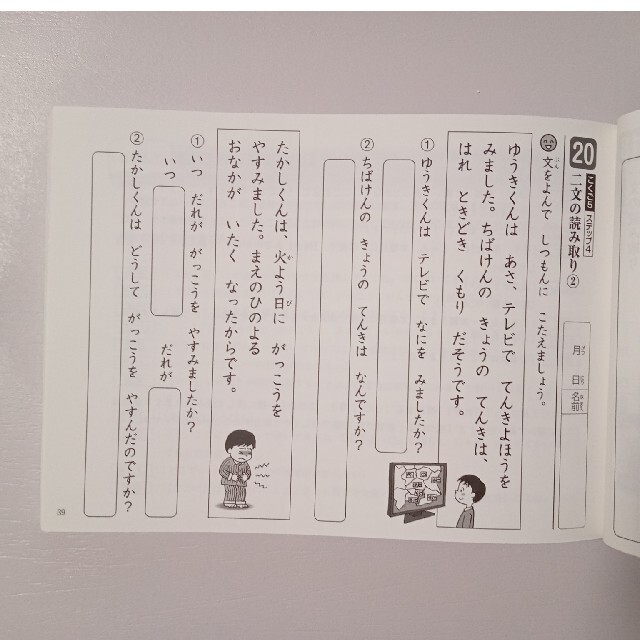 20
こくご5 ステップ4
二文の読み取り②
月 日 名前
文をよんで しつもんに こたえましょう。
ゆうきくんは あさ、テレビで てんきよほうを
みました。ちばけんの きょうの てんきは、
はれ ときどき くもり だそうです。
① ゆうきくんは テレビで なにを みましたか?
② ちばけんの きょうの てんきは なんですか?
たかしくんは、火よう日に がっこうを
やすみました。まえのひのよる
おなかが いたく なったからです。
① いつ だれが がっこうを やすみましたか?
いつ だれが
② たかしくんは どうして がっこうを やすんだのですか?
39